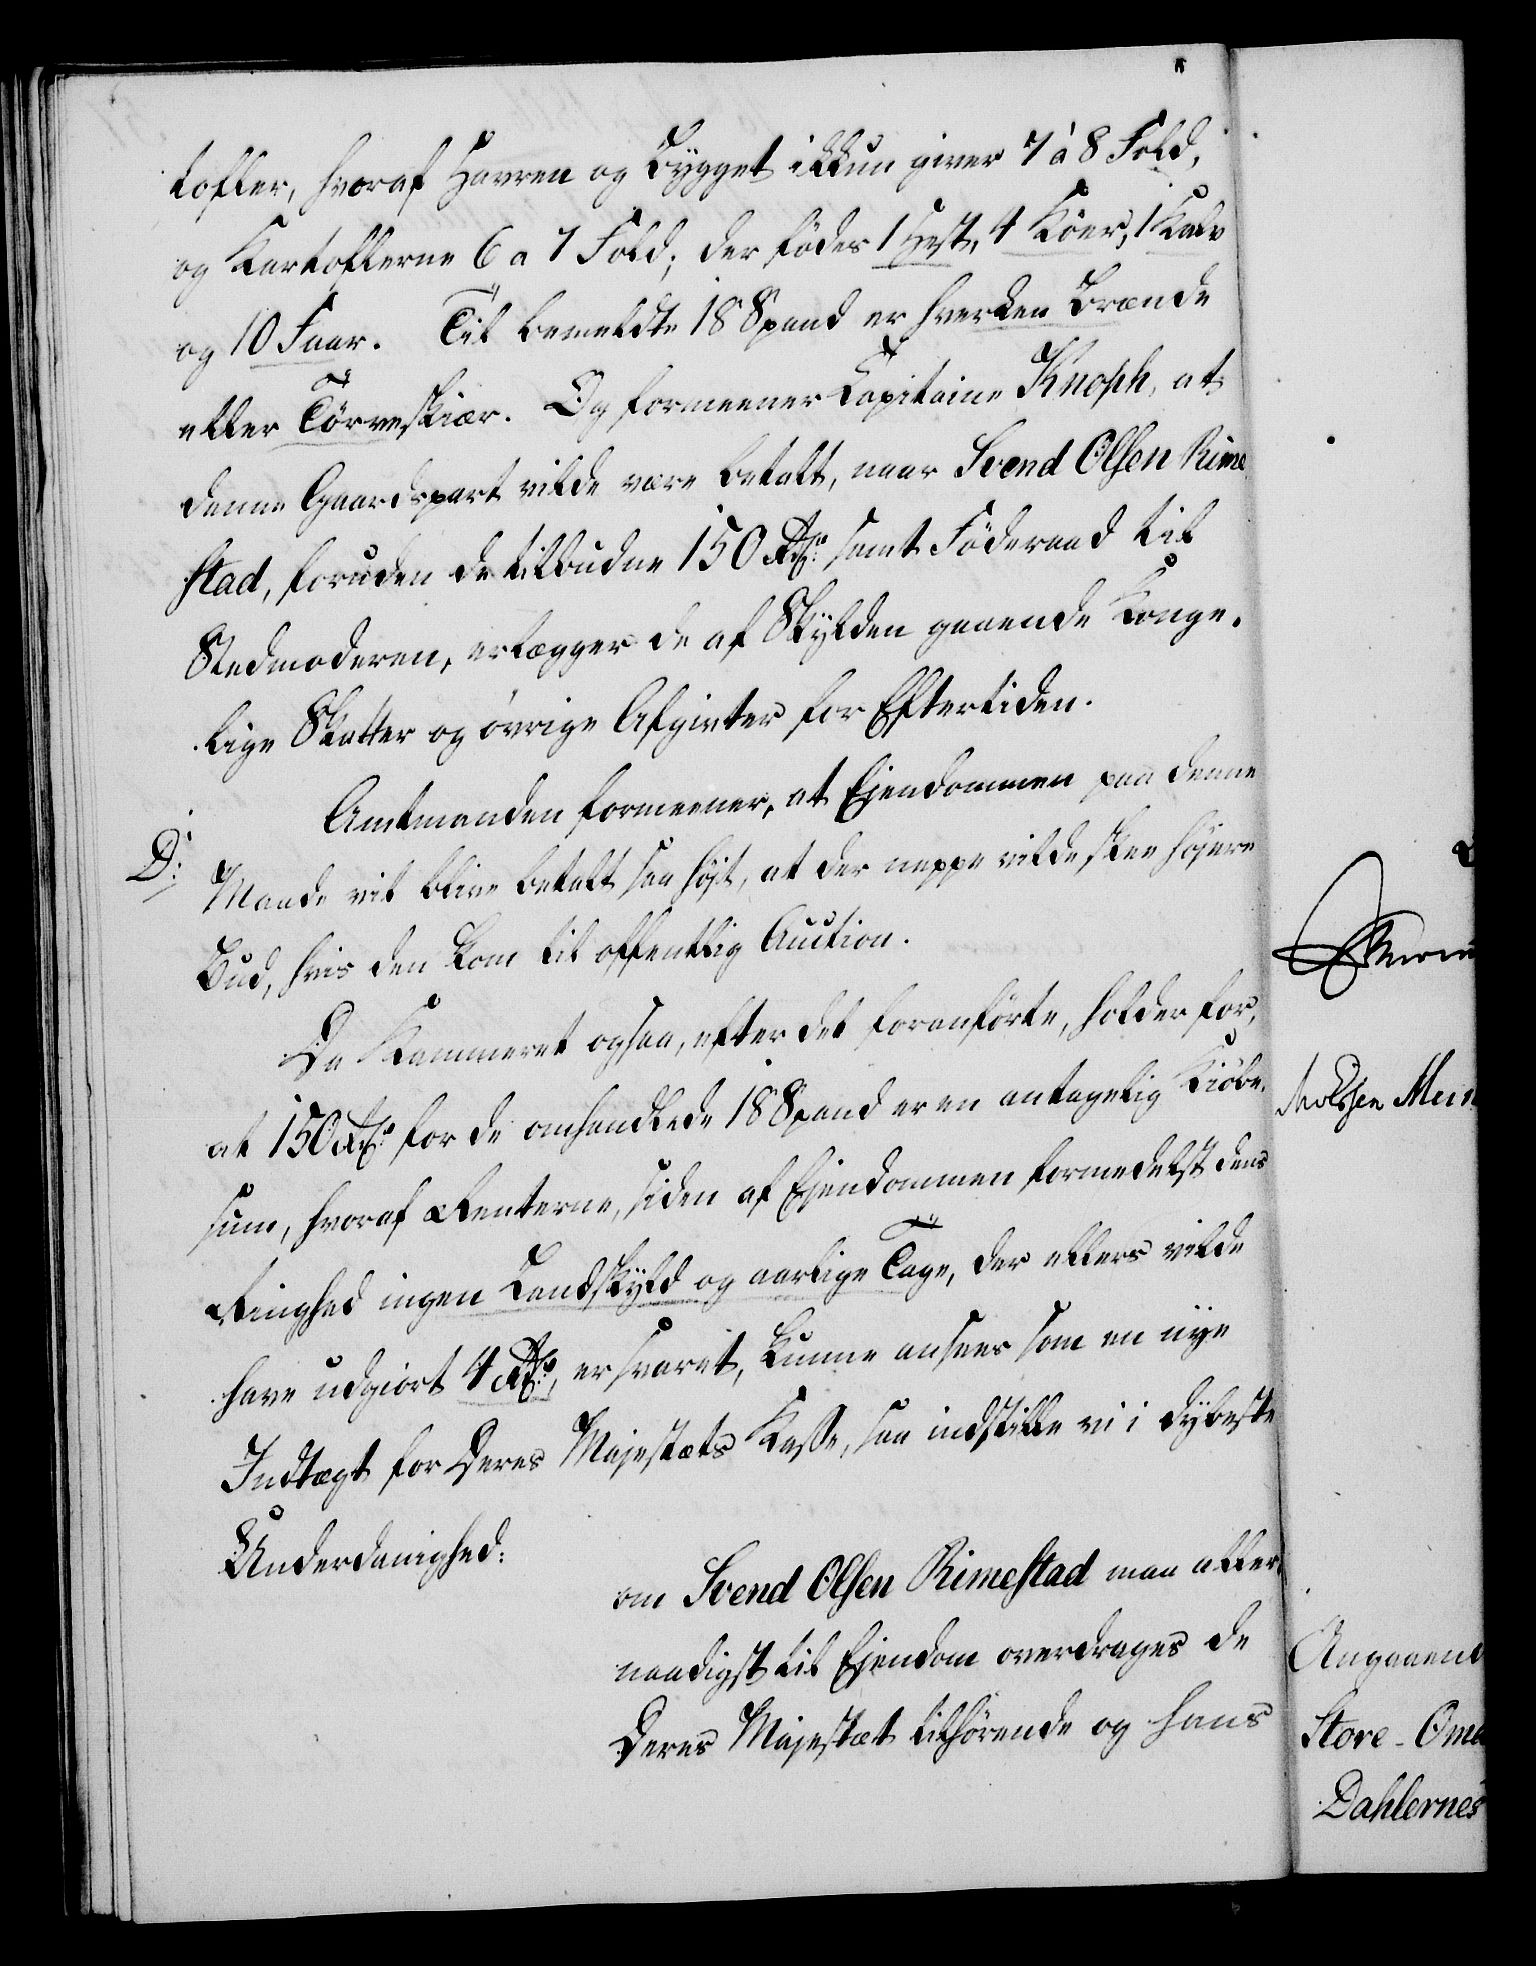 tofler, hvoraf Havren og Bygget ikkun giver 7 à 8 Fold,
og Kartoflerne 6 a 7 Fold; der födes 1 Hest, 4 Köer, 1 Kalv
og 10 Faar. Til bemeldte 18 Spand er hverken Brænde
eller Törveskiær. Og formeener Capitaine Knoph, at
denne Gaardspart vilde være betalt, naar Svend Olsen Rime
stad, foruden de tilbudne 150 Rdr. samt Föderaad til
Stedmoderen, erlægger de af Skylden gaaende Konge-
lige Skatter og övrige Afgivter for Eftertiden.
Amtmanden formeener, at Ejendommen paa denne
D:
Maade vil blive betalt saa höjt, at der neppe vilde skee höjere
Bud, hvis den kom til offentlig Auction.
Da Kammeret ogsaa, efter det foranförte, holder for,
at 150 Rdr. for de omhandlede 18 Spand er en antagelig Kiöbe-
sum, hvoraf Renterne, siden af Ejendommen formedelst dens
Ringhed ingen Landskyld og aarlige Tage, der ellers vilde
have udgiort 4 Rdr., er svaret, kunne ansees som en nye
Indtægt for Deres Majestæts Kasse, saa indstille vi i dybeste
Underdanighed:
om Svend Olsen Rimestad maa aller-
naadigst til Ejendom overdrages de
Deres Majestæt tilhörende og hans
Angaaend
Store-Ome
Dahlernes